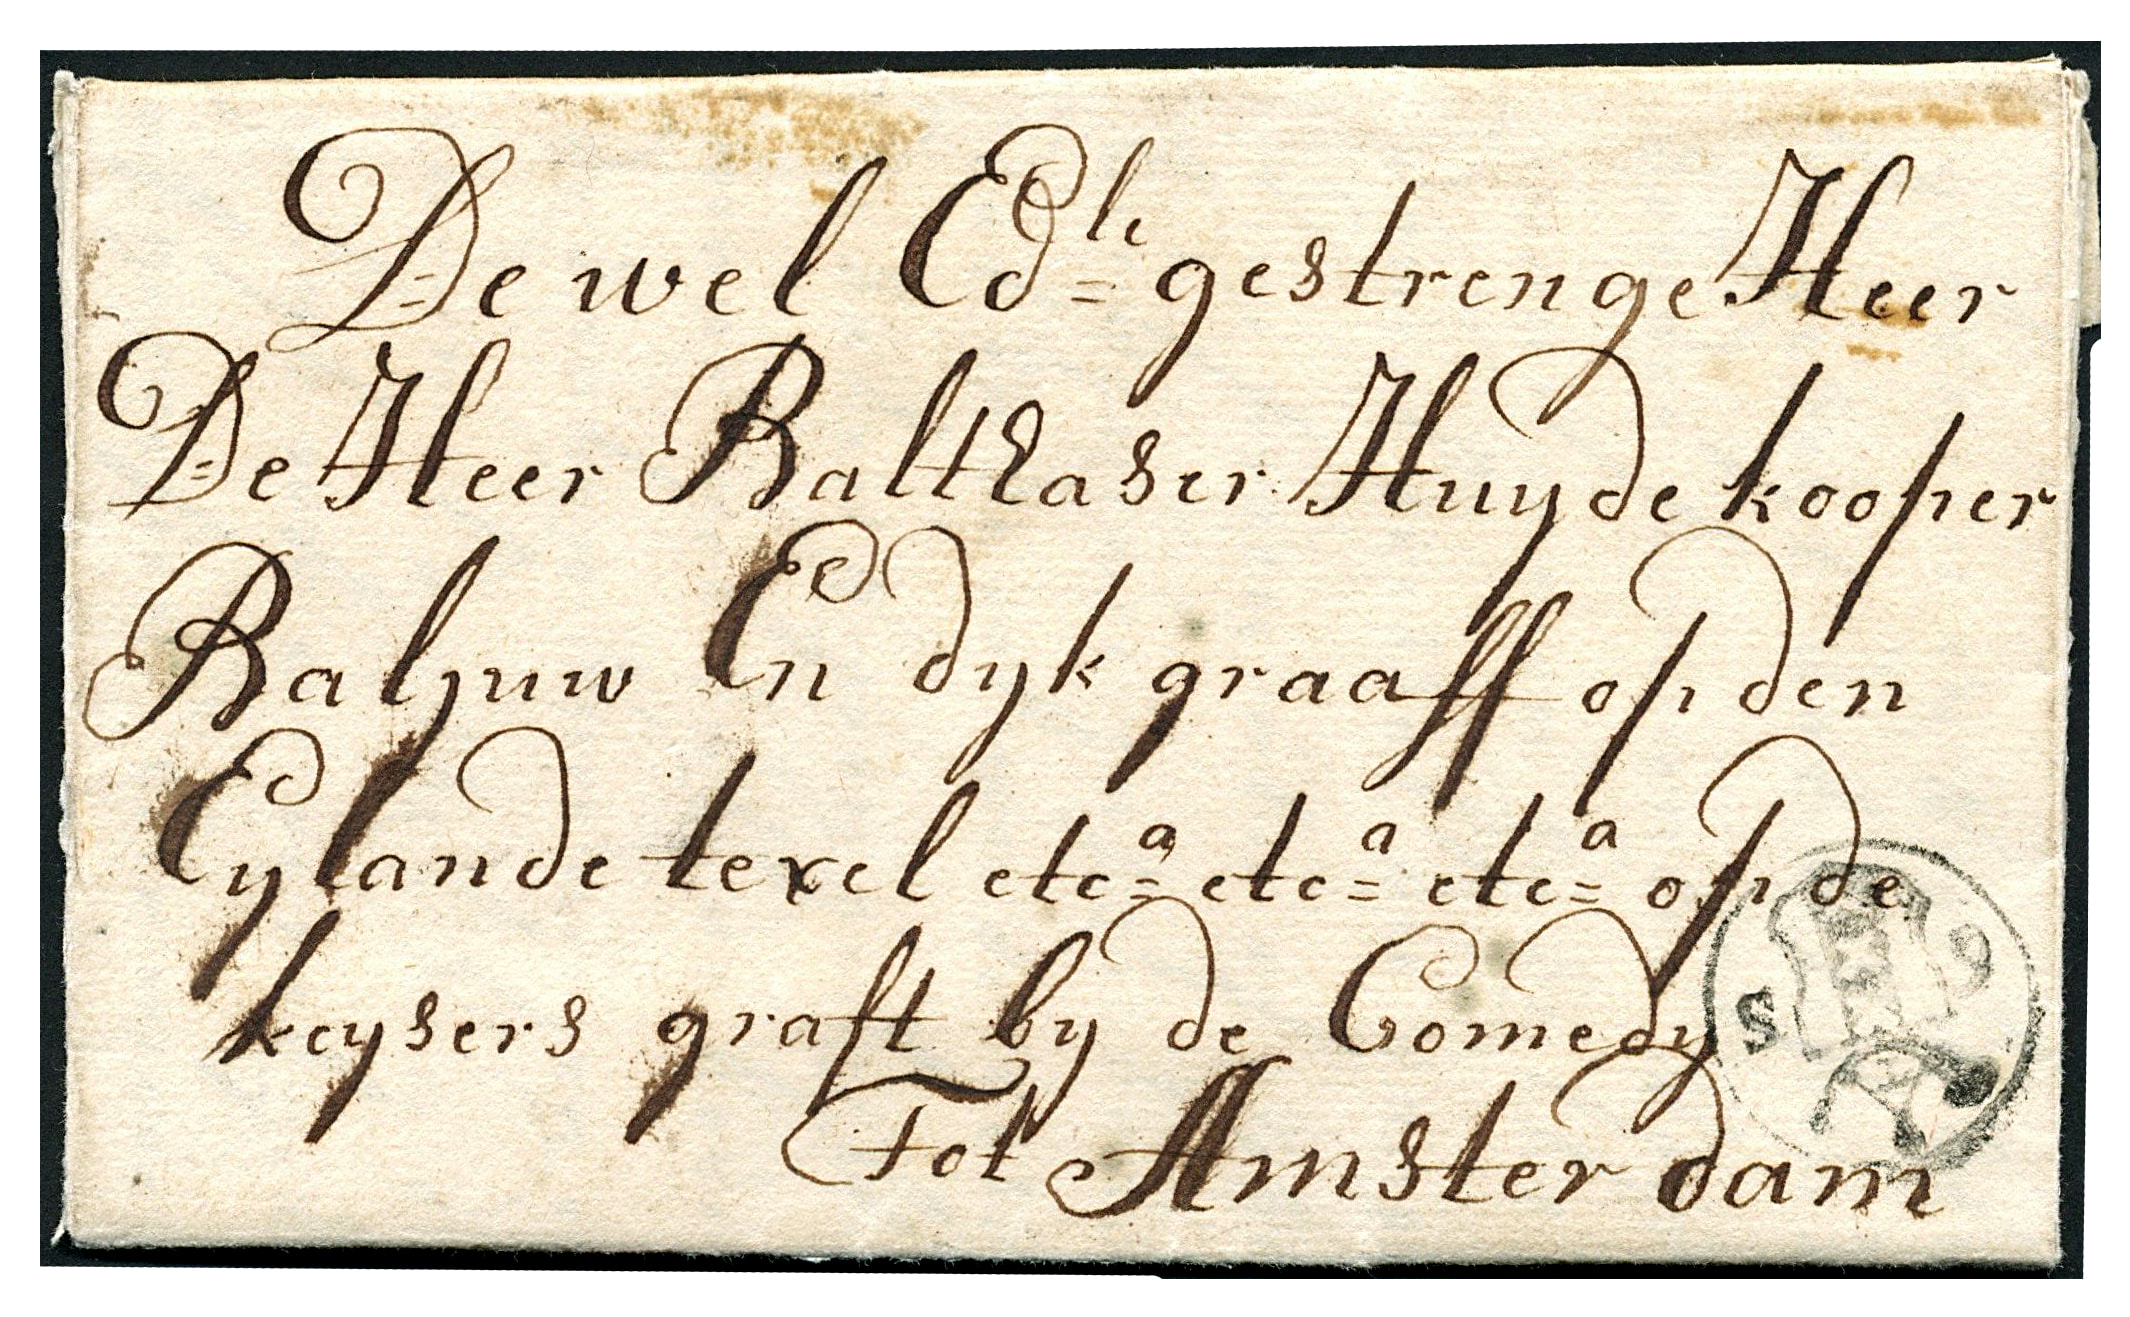 De wel Edle= gestrenge Heer
De Heer Balthaser Huydekooper
Baljuw En dykgraaff op den
Eylande texel etca= etca= etca= op de
keysers graft by de Comedy
Tot Amsterdam
S 9